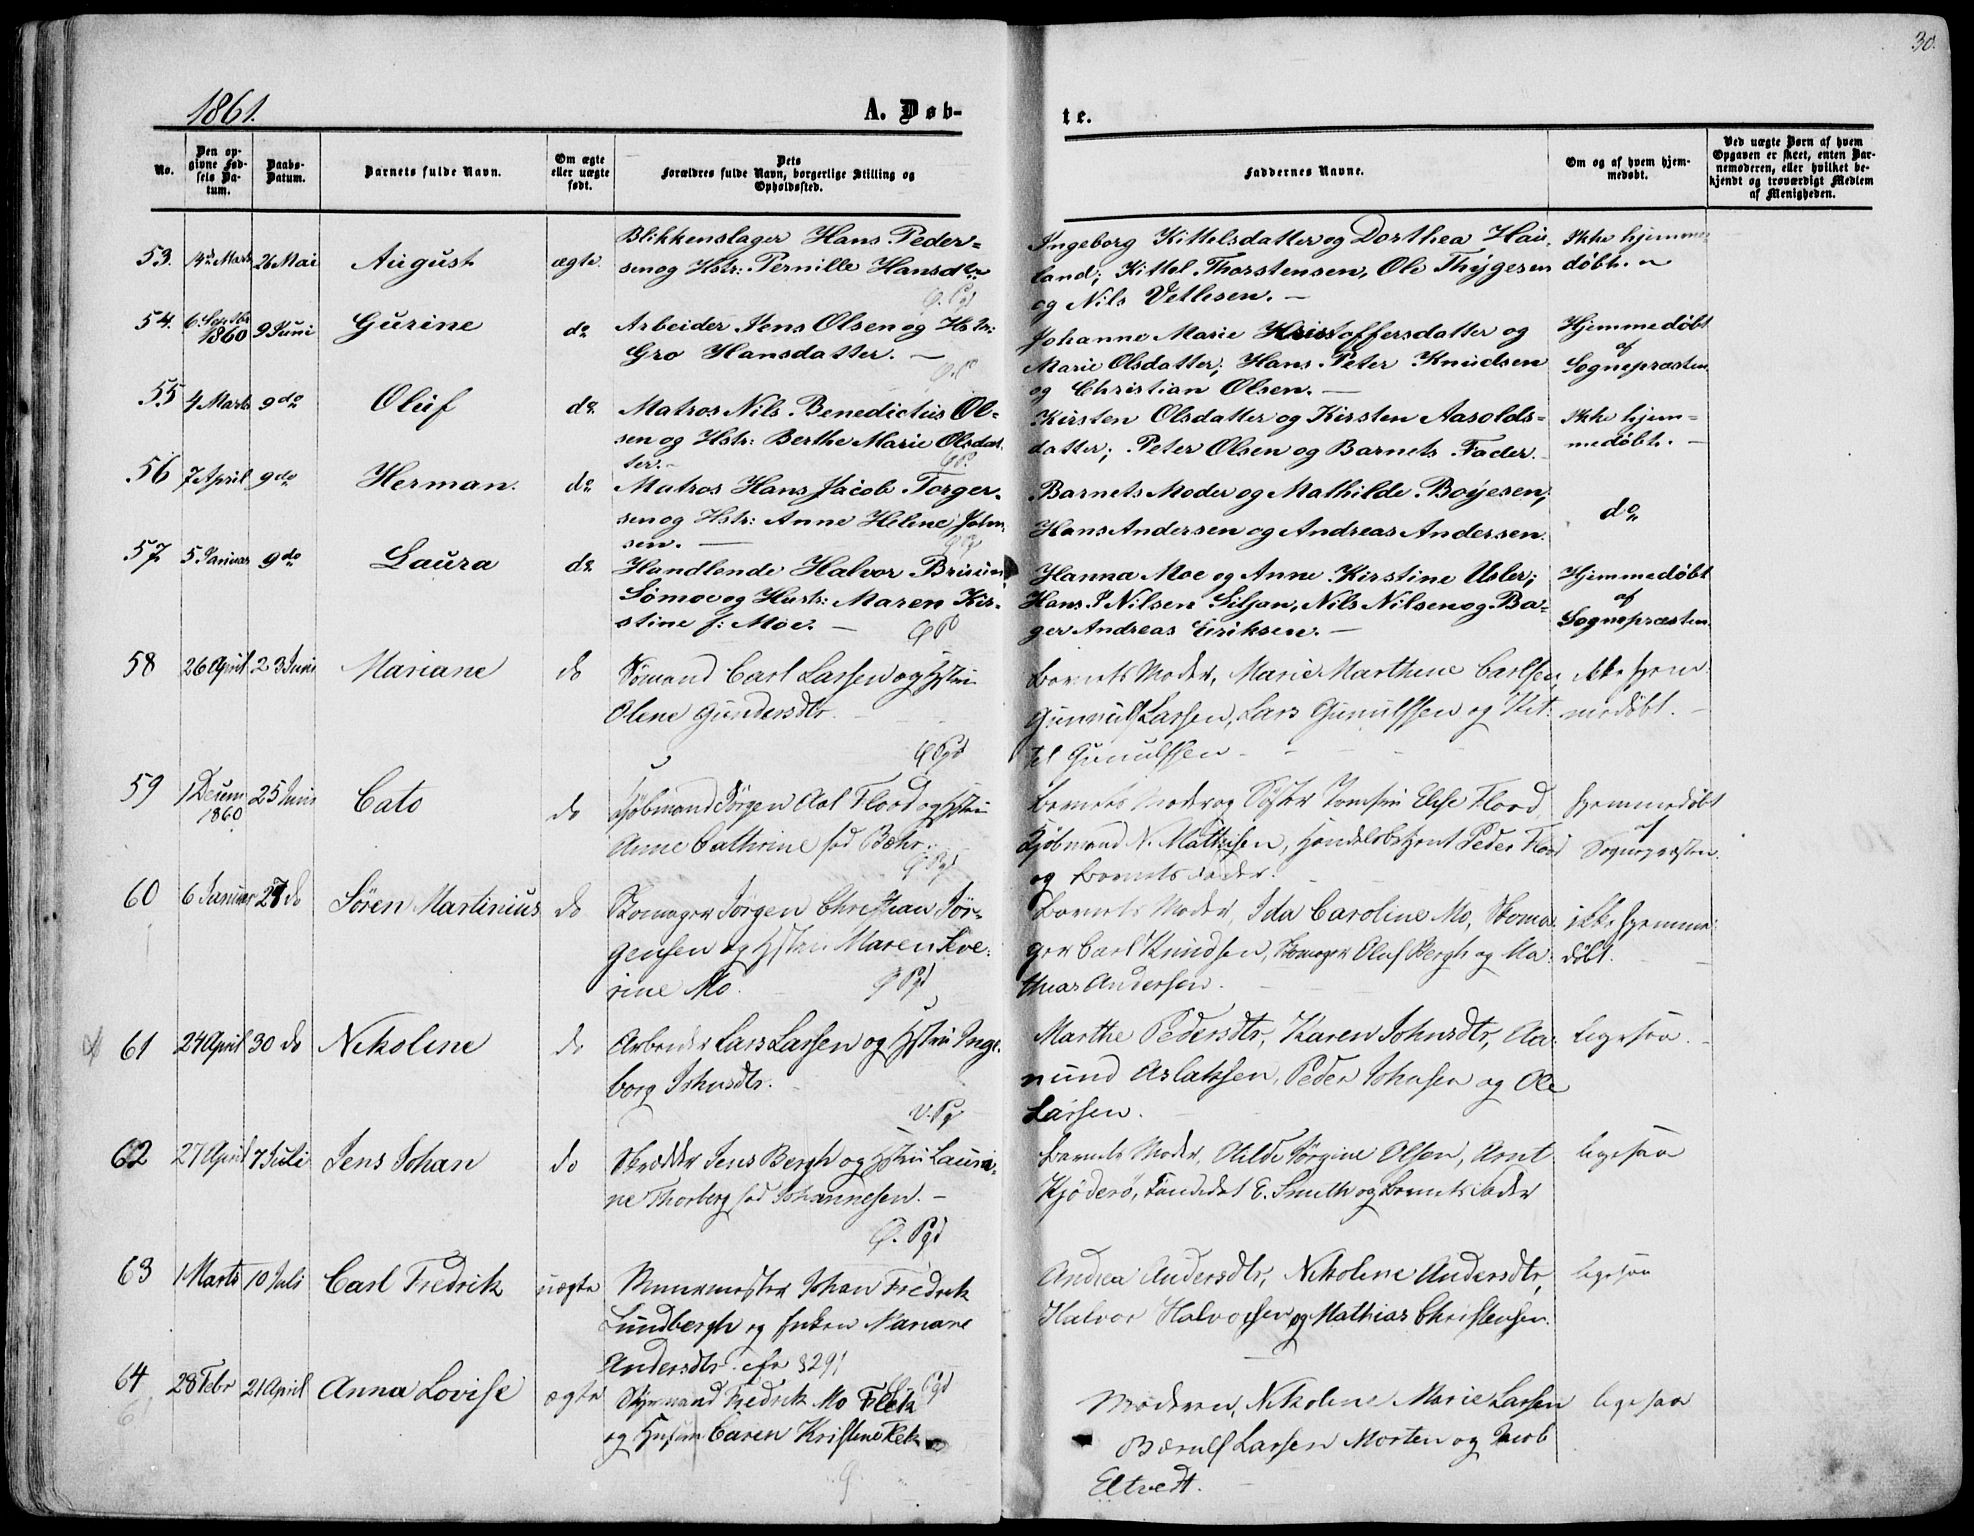 30.
1861.
A. Døb-
te.
No.
Den op-
givne Fød-
sels Da-
tum.
Daabs-
Datum.
Barnets fulde Navn.
Om ægte
eller uægte
født.
Dets
Forældres fulde Navn, borgerlige Stilling og
Opholdssted.
Faddernes Navne.
Om og af hvem hjem-
medøbt.
Ved uægte Børn af hvem
Opgaven er skeet, enten Bar-
nemoderen, eller hvilket be-
kjendt og troværdigt Medlem
af Menigheden.
53. Marts 26 Mai August ægte.
Blikkenslager Hans Peder-
sen og Hstr: Pernille Hansdtr.
Ingeborg Kittelsdatter og Dorthea Hau-
land; Kittel Thorstensen, Ole Thygesen
og Nils Vetlesen. —
Ikke hjemme-
døbt.
54. 6. Septbr
1860 9 Juni Gurine do
Arbeider Jens Olsen og Hstr:
Gro Hansdatter. —
Johanne Marie Kristoffersdatter og
Marie Olsdatter; Hans Peter Knudsen
og Christian Olsen. —
Hjemmedøbt
af
Sognepræsten.
55 4 Marts 9 do Oluf do
Matros Nils Benedictus Ol-
sen og Hstr: Berthe Marie Olsdat-
ter. —
Kirsten Olsdatter og Kirsten Aasolds-
datter; Peter Olsen og Barnets Fader.
Ikke hjem-
medøbt. —
56 7 April 9 do Herman. do
Matros Hans Jacob Torger-
sen og Hstr: Anne Helene John-
sen. —
Barnets Moder og Mathilde Boyesen;
Hans Andersen og Andreas Andersen.
do
57 5. Januar 9 do Laura do
Handlende Halvor Bruun
Sømoe og Hustr: Maren Kir-
stine f: Moe. —
Hanna Moe og Anne Kirstine Usler;
Hans P Nilsen Siljan, Nils Nilsen og Ba-
ger Andreas Eriksen. —
Hjemmedøbt
af
Sognepræsten.
58 26 April 23 Juni Mariane do
Sømand Carl Larsen og Hstru
Olene Gundersdtr.
Barnets Moder, Marie Marthene Carlsen,
Gunnulf Larsen, Lars Gunulfsen og Kit-
tel Gunulfsen
ikke hjem-
medøbt. —
Ø Pgd
59 1 Decem
1860 25 Juni Cato do
Kjøbmand Jørgen Aal Flood og Hstru
Anne Cathrine fød Bæhr.
Barnets Moder og Søster Elise Flood,
Kjøbmand N. Mathisen, Handelsbetjent Peder Flood
og Barnets Fader.
hjemmedøbt
af
Sognepræsten.
60 6 Januar 27 do Sören Martinius do
Skomager Jørgen Christian Jör-
gensen og Hstru Maren Seve-
rine Mo.
Ø Pgd
Barnets Moder, Ida Caroline Mo, Skoma-
ger Carl Knudsen, Skomager Oluf Bergh og Ma-
thias Andersen.
ikke hjemme-
døbt.
61 24 April 30 do Nikoline do
Arbeider Lars Larsen og Hstru Inge-
borg Johnsdtr.
Marthe Pedersdtr, Karen Johnsdtr, Aa-
nund Aslaksen, Peder Johnsen og Ole
Larsen.
ligesaa.
62 27 April 7 Juli Jens Johan do
Skrædder Jens Bergh og Hstru Lauri-
ne Thorberg fød Johannesen. —
Ø. Pgd
Barnets Moder, Jørgine Olsen, Arnt
Kjöderö, Candidat E. Smith og Barnets Fader
ligesaa
63 1 Marts 10 Juli Carl Fredrik uægte
Muurmester Johan Fredrik
Lundbergh og Enken Mariane
Andersdtr. cfr § 291
Andrea Andersdtr, Nikoline Andersdtr,
Halvor Halvorsen og Mathias Christensen.
ligesaa
64 28 Febr 21 April Anna Lovise ægte
Styrmand Fredrik Mo Flek
og Hustru Caren Kristine Flek
Moderen, Nikoline Marie Larsen
Larsen Morten og Jacob
Eltvedt.
ligesaa